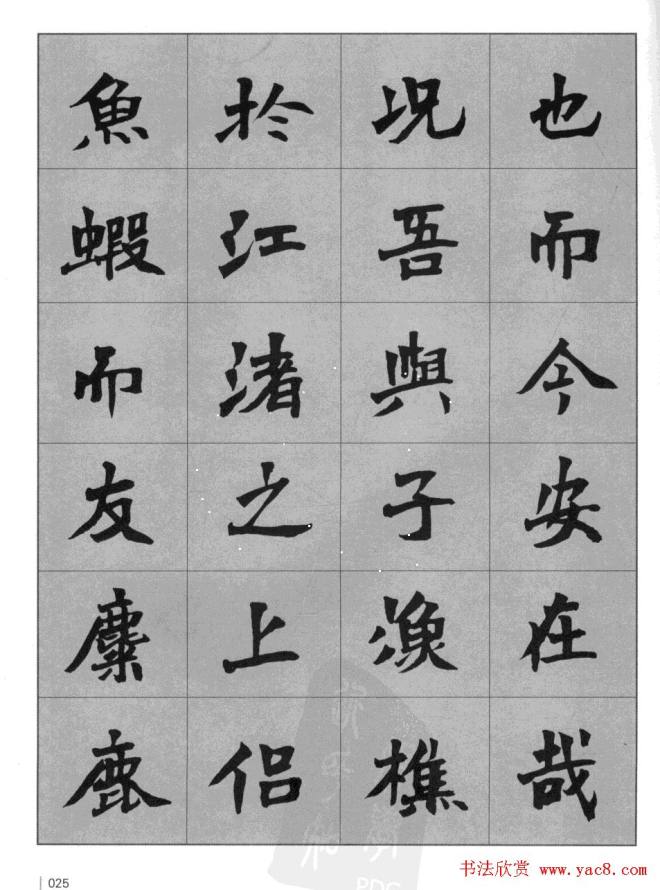 也而今安在哉
况吾與子渔樵
於江渚之上侣
魚蝦而友麋鹿
025
书法欣赏 www.yac8.com